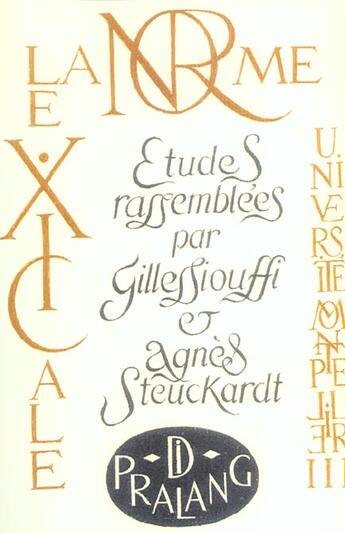 LA NORME
LEXICALE
Etudes
rassemblées
par
Gilles Siouffi
&
Agnès
Steuckardt
UNIVERSITÉ MONTPELLIER III
DI
PRALANG